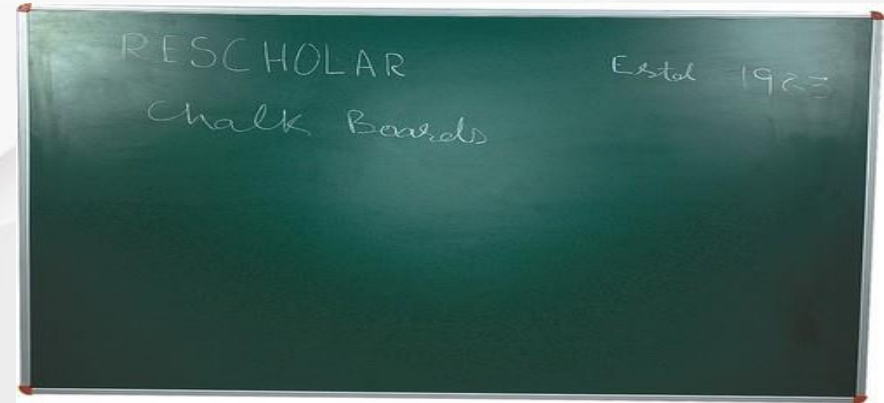 RESCHOLAR Estd
Chalk Boards